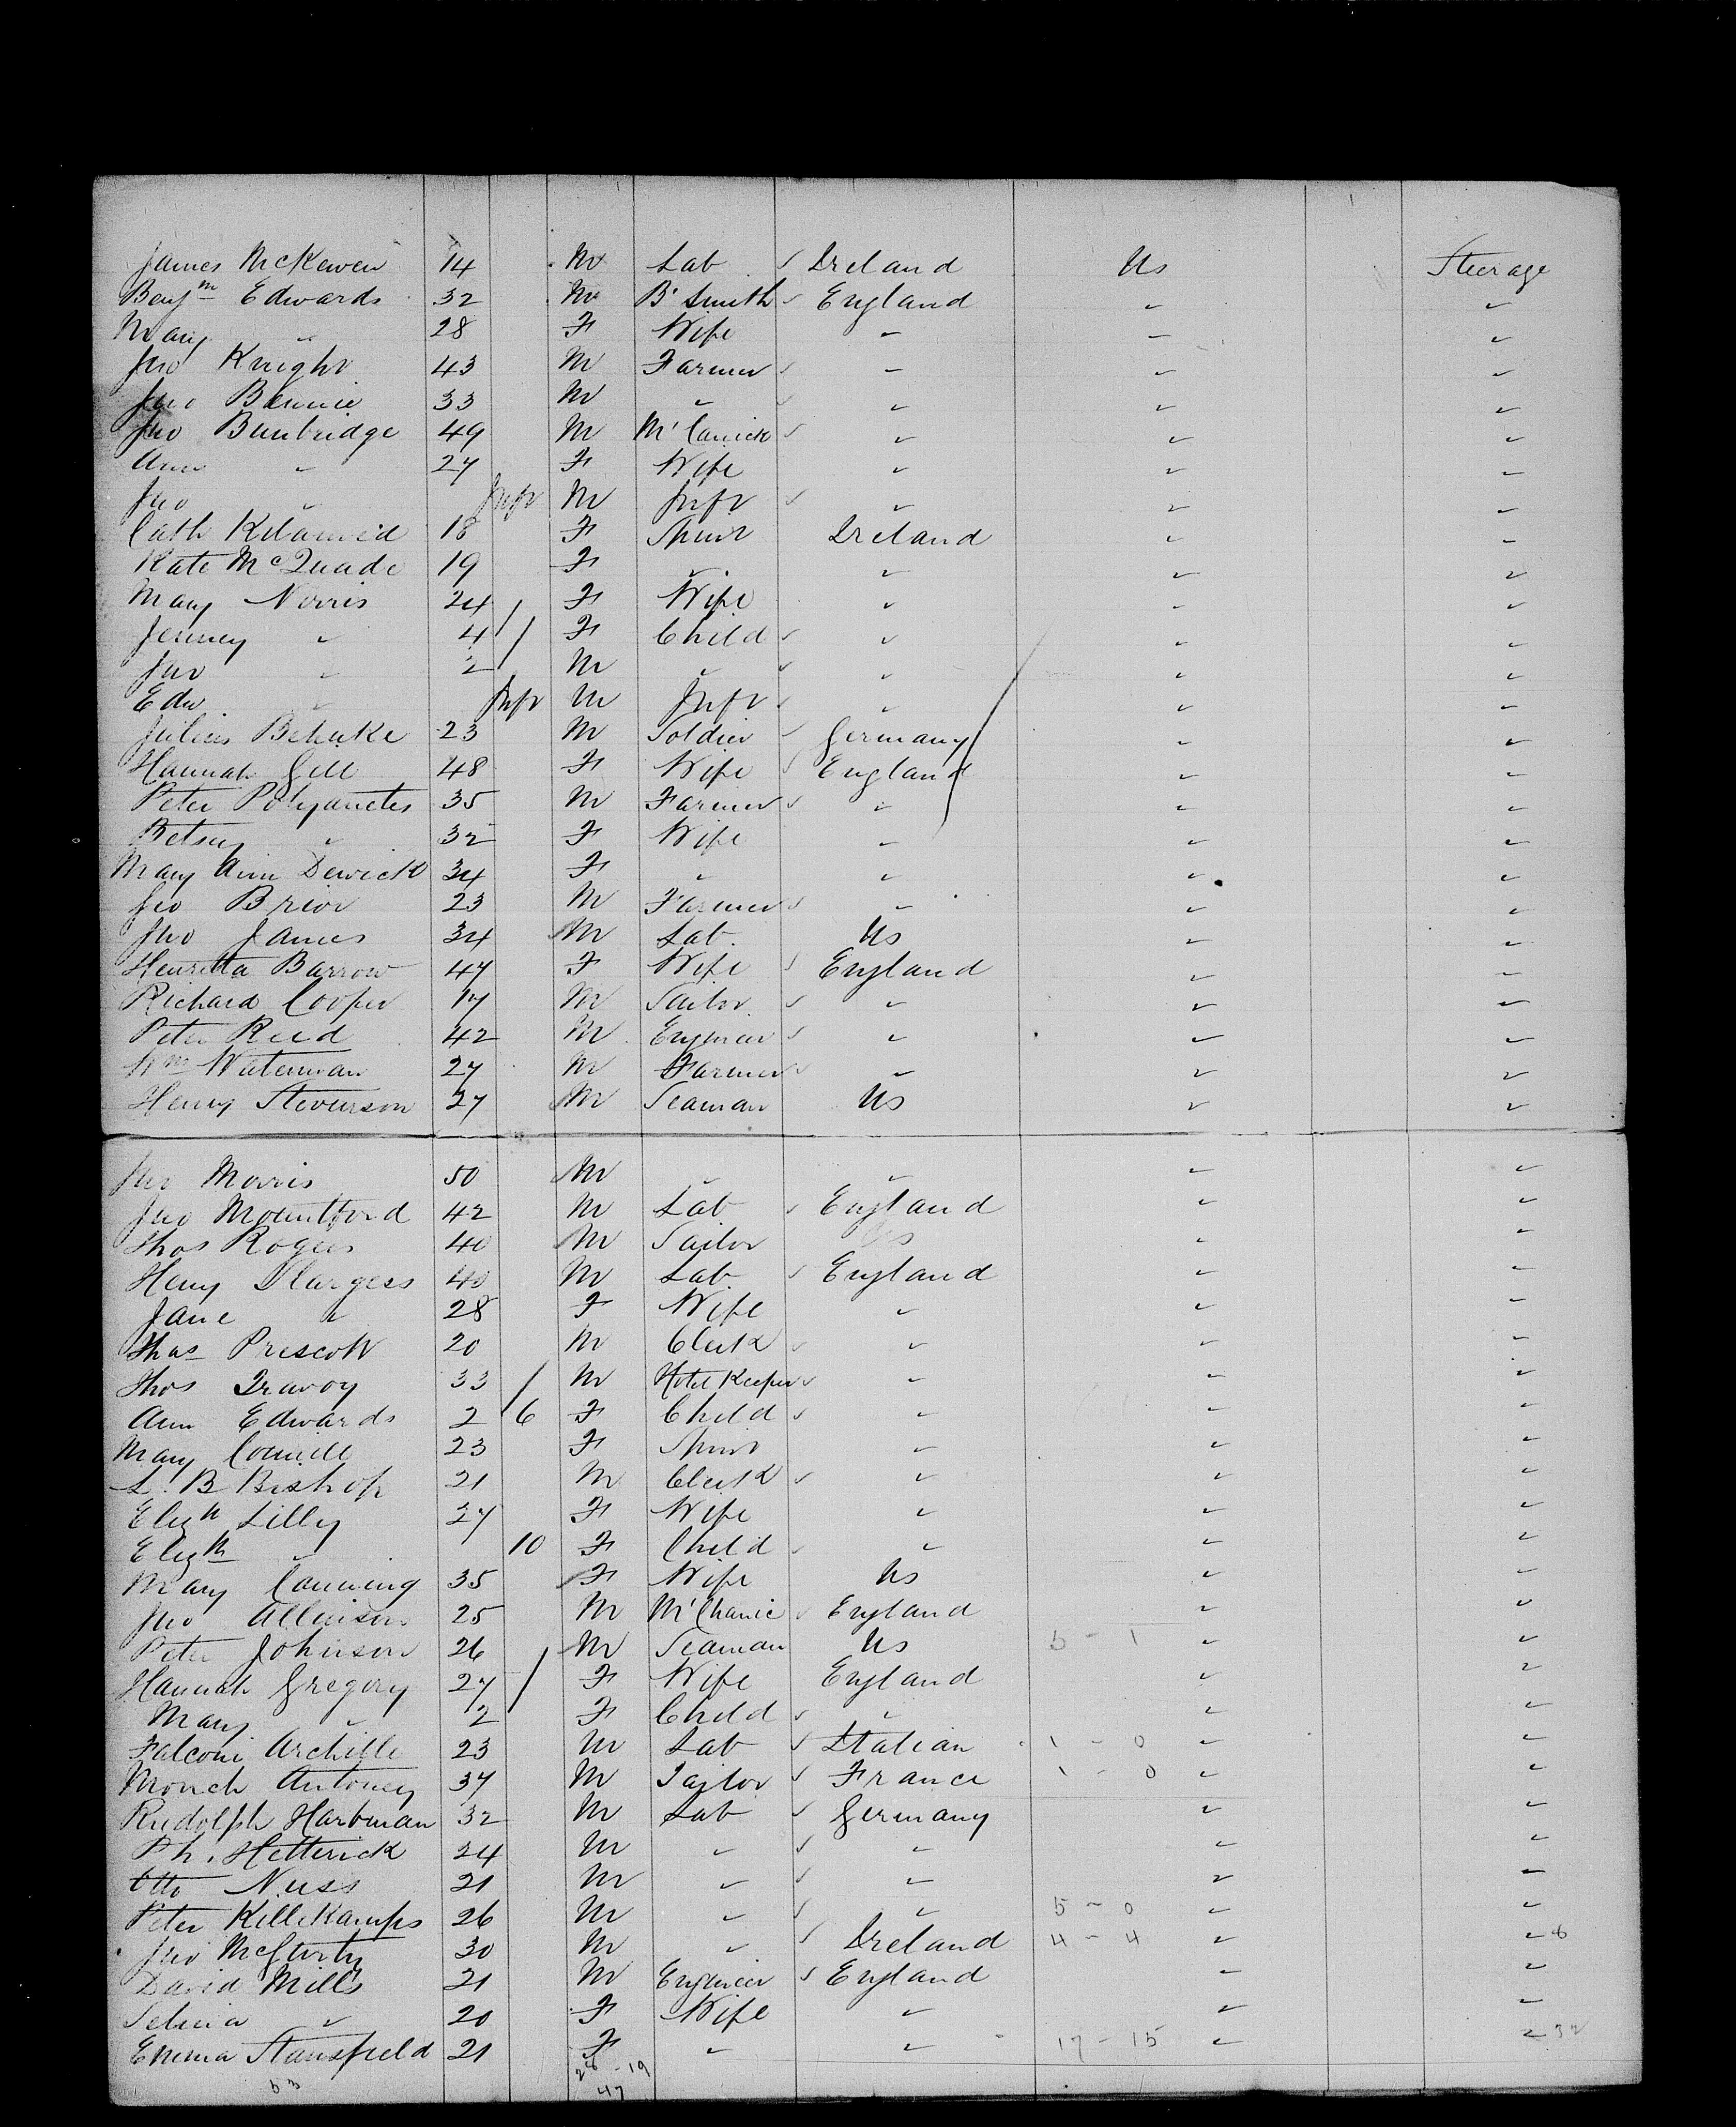 James McKewen 14 M Lab Ireland Us Steerage
Benjm Edwards 32 M B'Smith England " "
Mary " 28 F Wife " " "
Jno Knight 43 M Farmer " " "
Jno 33 M " " " "
Jno Bunbridge 49 M M'Canick " " "
Ann " 27 F Wife " " "
Jno " Inft M Inft " " "
Cath 18 F Spinr Ireland " "
Kate McQuade 19 F " " " "
Mary Norris 24 F Wife " " "
Jenney " 4 F Child " " "
Jno " 2 M " " " "
Edw " Inft M Inft " " "
Julius Behuke 23 M Soldier Germany " "
Hannah Gill 48 F Wife England " "
Peter 35 M Farmer " " "
Betsey " 32 F Wife " " "
Mary Ann Dewick 34 F " " " "
Geo Brior 23 M Farmer " " "
Jno James 34 M Lab. Us " "
Henretta Barrow 47 F Wife England " "
Richard Cooper 17 M Sailor " " "
Peter Reed 42 M Engineer " " "
Wm Waterman 27 M Farmer " " "
Henry Stevenson 27 M Seaman Us " "
Jno Morris 50 M " " " "
Jno Mountford 42 M Lab England " "
Thos Rogers 40 M Sailor Us " "
Henry Sturgess 40 M Lab. England " "
Jane " 28 F Wife " " "
Thos Prescott 20 M Clerk " " "
Thos 33 M Hotel Keeper " " "
Ann Edwards 2 6 F Child " " "
Mary 23 F Spinr " " "
L. B Bishop 21 M Clerk " " "
Elizh Lilly 27 F Wife " " "
Elizh " 10 F Child " " "
Mary Canning 35 F Wife Us " "
Jno Allinson 25 M M'Chanic England " "
Peter Johnson 26 M Seaman Us 5 - 1 " "
Hannah Gregory 27 F Wife England " "
Mary " 2 F Child " " "
Falconi Archille 23 M Lab Italian 1 - 0 " "
Monch Antoney 37 M Tailor France 1 - 0 " "
Rudolph Hartman 32 M Lab Germany " "
Ph. Hetterick 24 M " " " "
Otto Nuss 21 M " " " "
Peter Killekamps 26 M " " 5 - 0 " "
Jno McGurty 30 M " Ireland 4 - 4 " " 6
David Mills 21 M Engineer England " "
Selina " 20 F Wife " " "
Emma Stansfield 21 F " " 17 - 15 " " 32
53 28 - 19
47